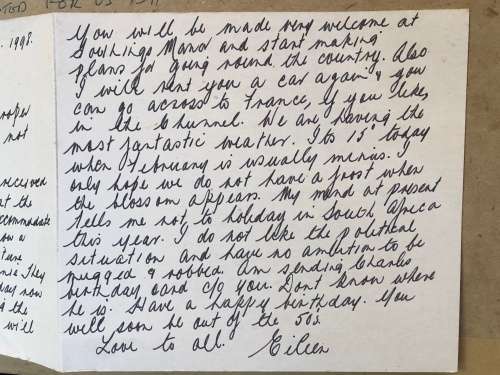 FOR US
1998.
You will be made very welcome at
Southings Manor and start making
plans for going round the country. Also
I will rent you a car again & you
can go across to France, if you like,
in the Chunnel. We are having the
most fantastic weather. Its 15° today
when February is usually minus. I
only hope we do not have a frost when
the blossom appears. My mind at present
tells me not to holiday in South Africa
this year. I do not like the political
situation and have no ambition to be
mugged & robbed. Am sending Charles
birthday card c/o you. Dont know where
he is. Have a happy birthday. You
will soon be out of the 50's.
Love to all. Eileen
not
received
at the
ccommodate
ow a
ture
They
now
the
will